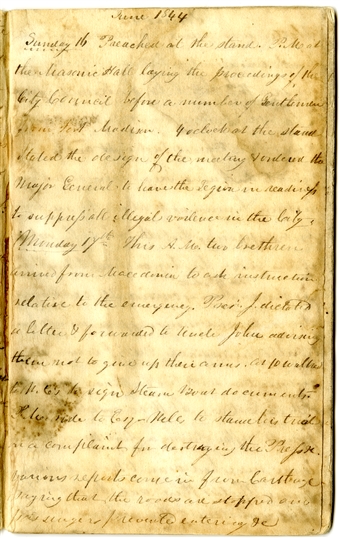 June 1844
Sunday 16 Preached at the stand. P.M. at
the Masonic Hall laying the proceedings of the
City Council before a number of Gentlemen
from Fort Madison. 4 oclock at the stand
stated the design of the meeting & ordered the
Major General to have the Legion in readiness
to suppress all illegal violence in the City.
Monday 17th This A.M. two brethren
arrived from Macedonia to ask instruction
relative to the emergency. Pres. J. dictated
a letter & forwarded to Uncle John advising
them not to give up their arms.
to sign Steam Boat documents
rode to Esqr Wells to stand his trial
on a complaint for destroying the Press.
reports come in from Carthage
saying that the roads are stopped and